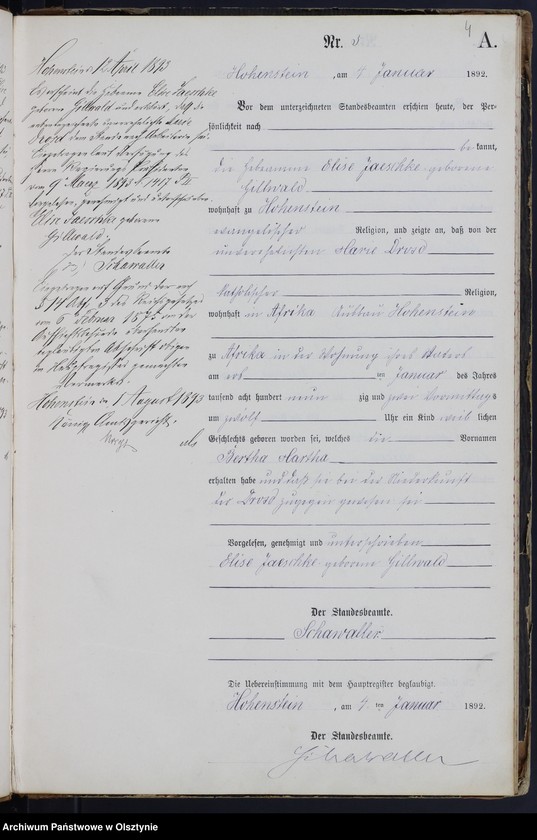 4
Nr. 5. A.
Hohenstein, am 4. Januar 1892.
Vor dem unterzeichneten Standesbeamten erschien heute, der Per-
sönlichkeit nach
bekannt,
die Hebamme Elise Jaeschke geborene
Gillwald
wohnhaft zu Hohenstein
evangelischer Religion, und zeigte an, daß von der
unverehelichten Marie Drosd
katholischer Religion,
wohnhaft in Afrika Hohenstein
zu Afrika in der Wohnung ihres Vaters
am ersten Januar des Jahres
tausend acht hundert neunzig und zwei Vormittags
um zwölf Uhr ein Kind weiblichen
Geschlechts geboren worden sei, welches die Vornamen
Bertha Martha
erhalten habe und daß sie bei der Niederkunft
der Drosd zugegen gewesen sei
Vorgelesen, genehmigt und unterschrieben
Elise Jaeschke geborene Gillwald
Der Standesbeamte.
Schawaller
Die Uebereinstimmung mit dem Hauptregister beglaubigt.
Hohenstein, am 4ten Januar 1892.
Der Standesbeamte.
Schawaller
Hohenstein 1 April 1893
Es erscheint die Hebamme Elise Jaeschke
geborene Gillwald und erklärt, daß die
unverehelichte
Drosd
Eingetragen laut Verfügung des
Herrn Regierungs Präsidenten
vom 9 März 1893
Vorgelesen, genehmigt und unterschrieben
Elise Jaeschke geborene
Gillwald.
Der Standesbeamte
Schawaller
Eingetragen auf Grund der nach
§ 14 Abs. 3 des Reichsgesetzes
vom 6 Februar 1875 von der
Aufsichtsbehörde
beglaubigten Abschrift obigen
im Hauptregister gemachten
Vermerks.
Hohenstein 1 August 1893
Königl. Amtsgericht.
Archiwum Państwowe w Olsztynie